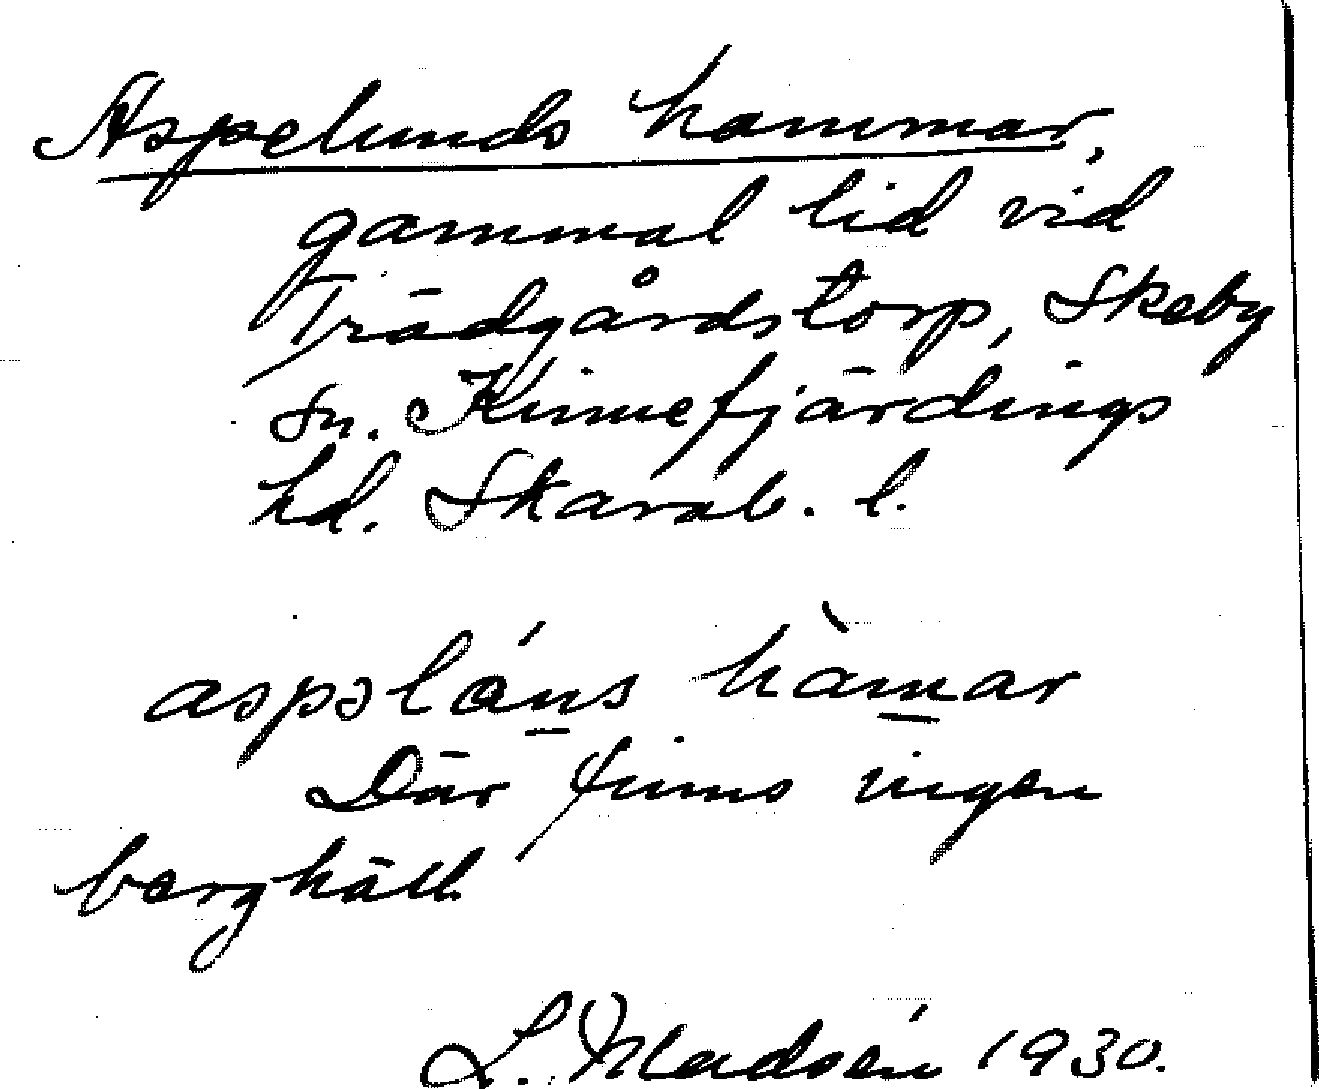 Aspelunds hammar,
gammal lid vid
Trädgårdstorp, Skeby
sn. Kinnefjärdings
hd. Skarab. l.
aspəláns hàmar
Där finns ingen
berghäll.
L. Madsén 1930.